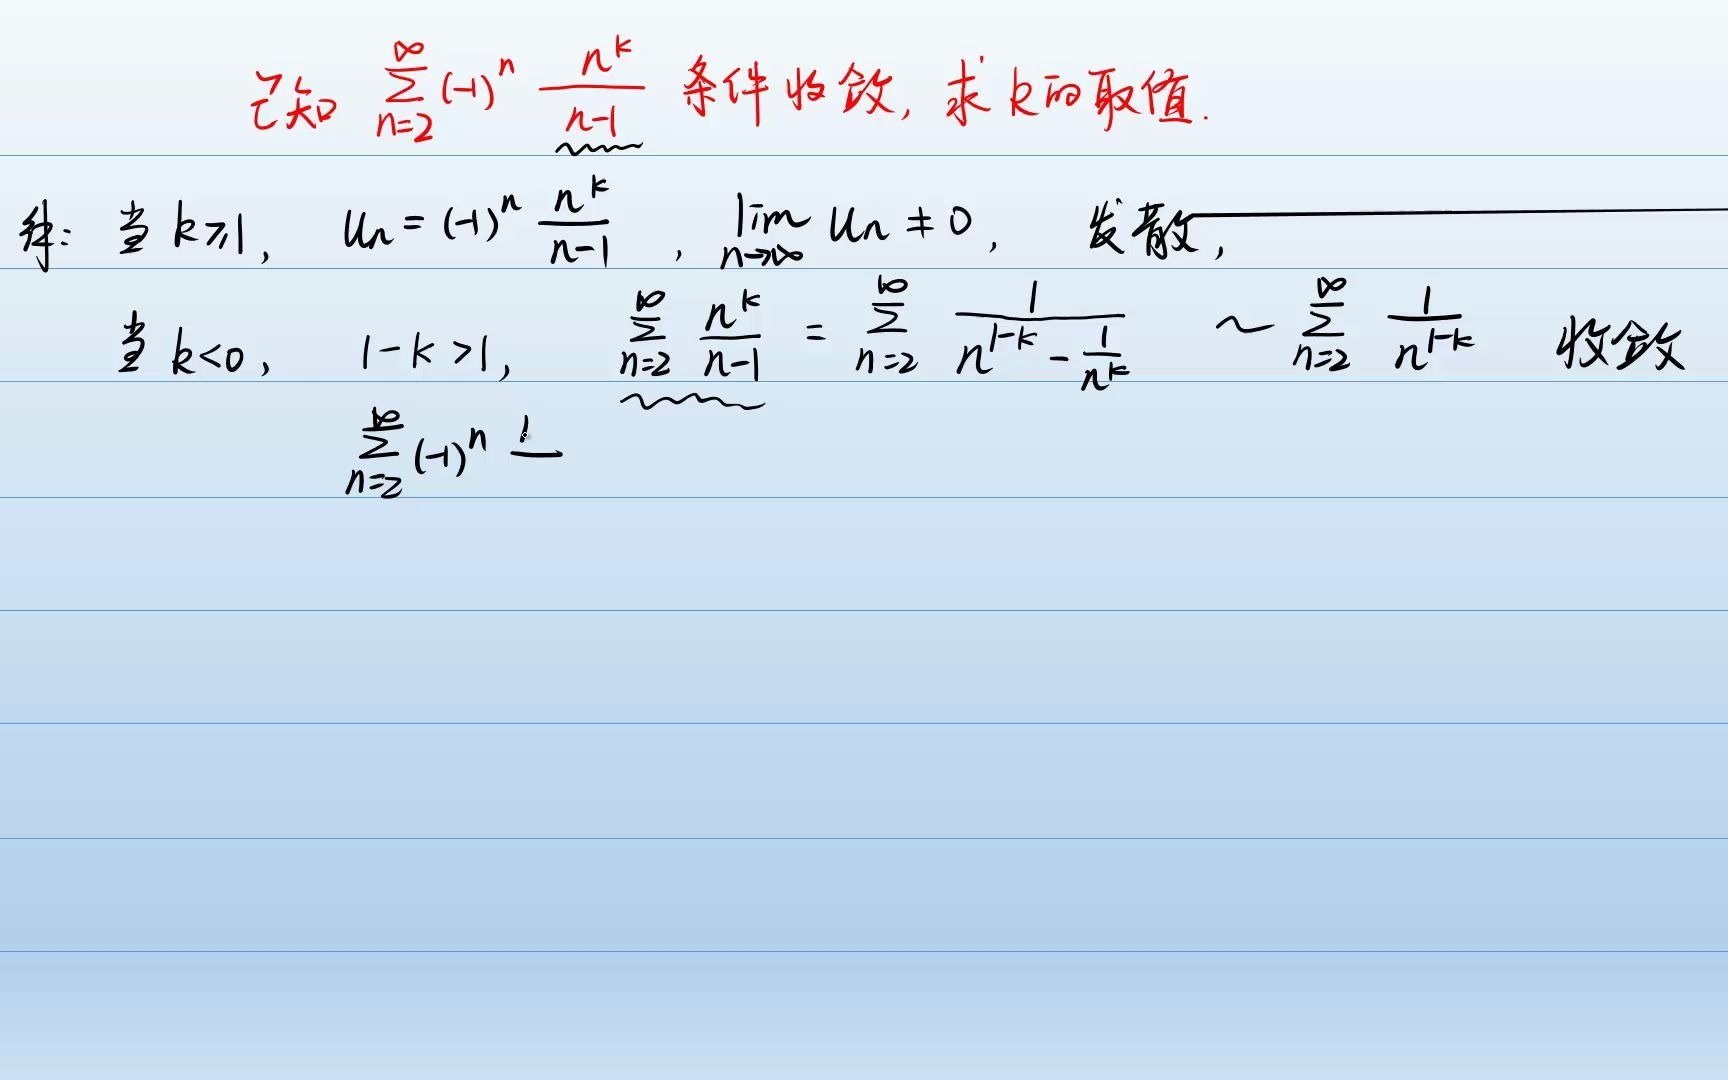 已知 ∑_{n=2}^{∞} (-1)^n n^k/(n-1) 条件收敛, 求k的取值.
解: 当 k≥1, u_n = (-1)^n n^k/(n-1), lim_{n→∞} u_n ≠ 0, 发散,
当 k<0, 1-k>1, ∑_{n=2}^{∞} n^k/(n-1) = ∑_{n=2}^{∞} 1/(n^{1-k} - 1/n^k) ~ ∑_{n=2}^{∞} 1/n^{1-k} 收敛
∑_{n=2}^{∞} (-1)^n 1/